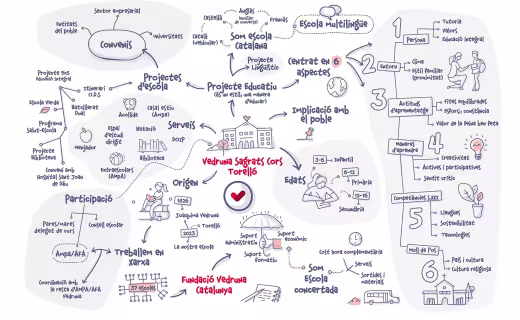 Sector empresarial
Entitats
del poble
Universitats
Convenis
Castellà
Anglès
Francès
Català
(vehicular)
Som escola
Catalana
Escola multilingüe
Projecte
Lingüístic
Centrat en 6
aspectes
Projecte Educatiu
Projectes
d'escola
Itinerari
O.D.S
Batxillerat
Dual
Escola Verda
Programa
Salut-escola
Projecte
Biblioteca
Conveni amb
Hospital Sant Joan
de Déu
Serveis
Acollida
Casal estiu
(Ampa)
Espai
d'estudi
dirigit
Natació
Menjador
Biblioteca
Extraescolars
(AMPA)
Implicació amb
el poble
Vedruna Sagrats Cors
Torelló
Origen
1826
Joaquima Vedruna
Torelló
La nostra escola
Edats
3-6
Infantil
6-12
Primària
12-16
Secundària
Participació
Pares/mares
delegat de curs
Consell escolar
Ampa/AFA
Coordinació amb
la resta d'AMPA/AFA
Vedruna
Treballem en
xarxa
37 escoles
Fundació Vedruna
Catalunya
Suport
administratiu
Suport
econòmic
Suport
formatiu
Som
Escola
concertada
Cost hora complementària
Serveis
Sortides i
materials
1
Persona
Tutoria
Valors
Educació integral
2
Entorn
Clima
Estil familiar
(proximitat)
3
Actituds
d'aprenentatge
Fites equilibrades
Esforç, constància
Valor de la feina ben feta
4
Maneres
d'aprendre
Creativitat
Actives i participatives
Sentit crític
5
Competències S.XXI
Llengües
Sostenibilitat
Tecnologies
6
Molt de Nos
País i cultura
Cultura religiosa